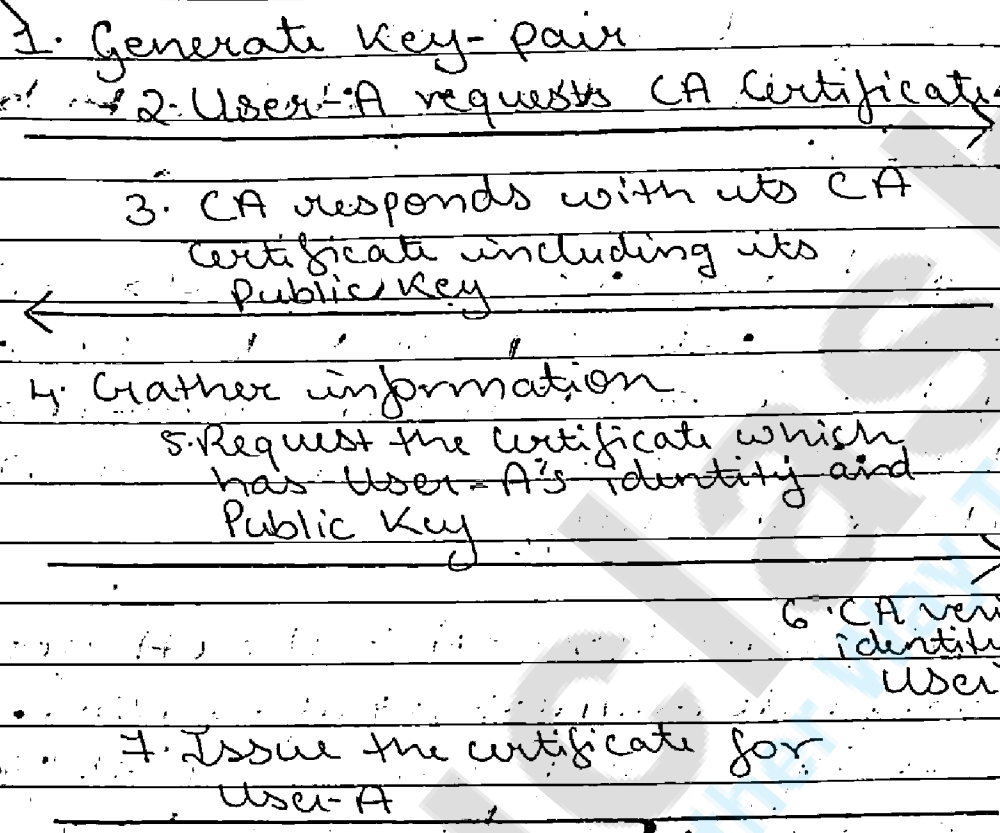 1. Generate Key-pair
2. User-A requests CA Certificate
3. CA responds with its CA
Certificate including its
Public Key
4. Gather information
5. Request the certificate which
has User-A's identity and
Public Key
6. CA veri
identity
User
7. Issue the certificate for
User-A